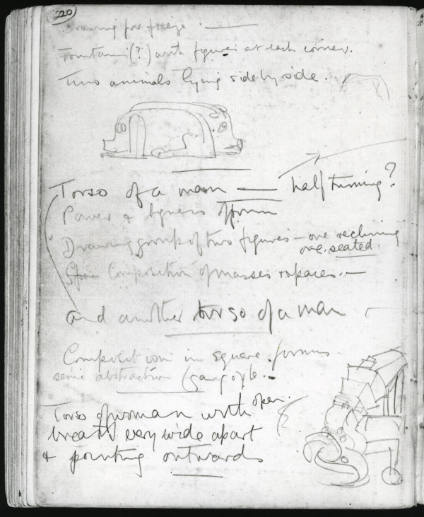 20
Drawing for frieze. —
Fountain (?) with figures at each corner.
Two animals lying side by side.
Torso of a man — half turning?
Power & bigness of form
Drawing group of two figures – one reclining
one seated.
Composition of masses & spaces. —
and another torso of a man
Composition in square forms
semi abstraction (gargoyle. —
Torso of woman with open
breasts very wide apart
& pointing outwards